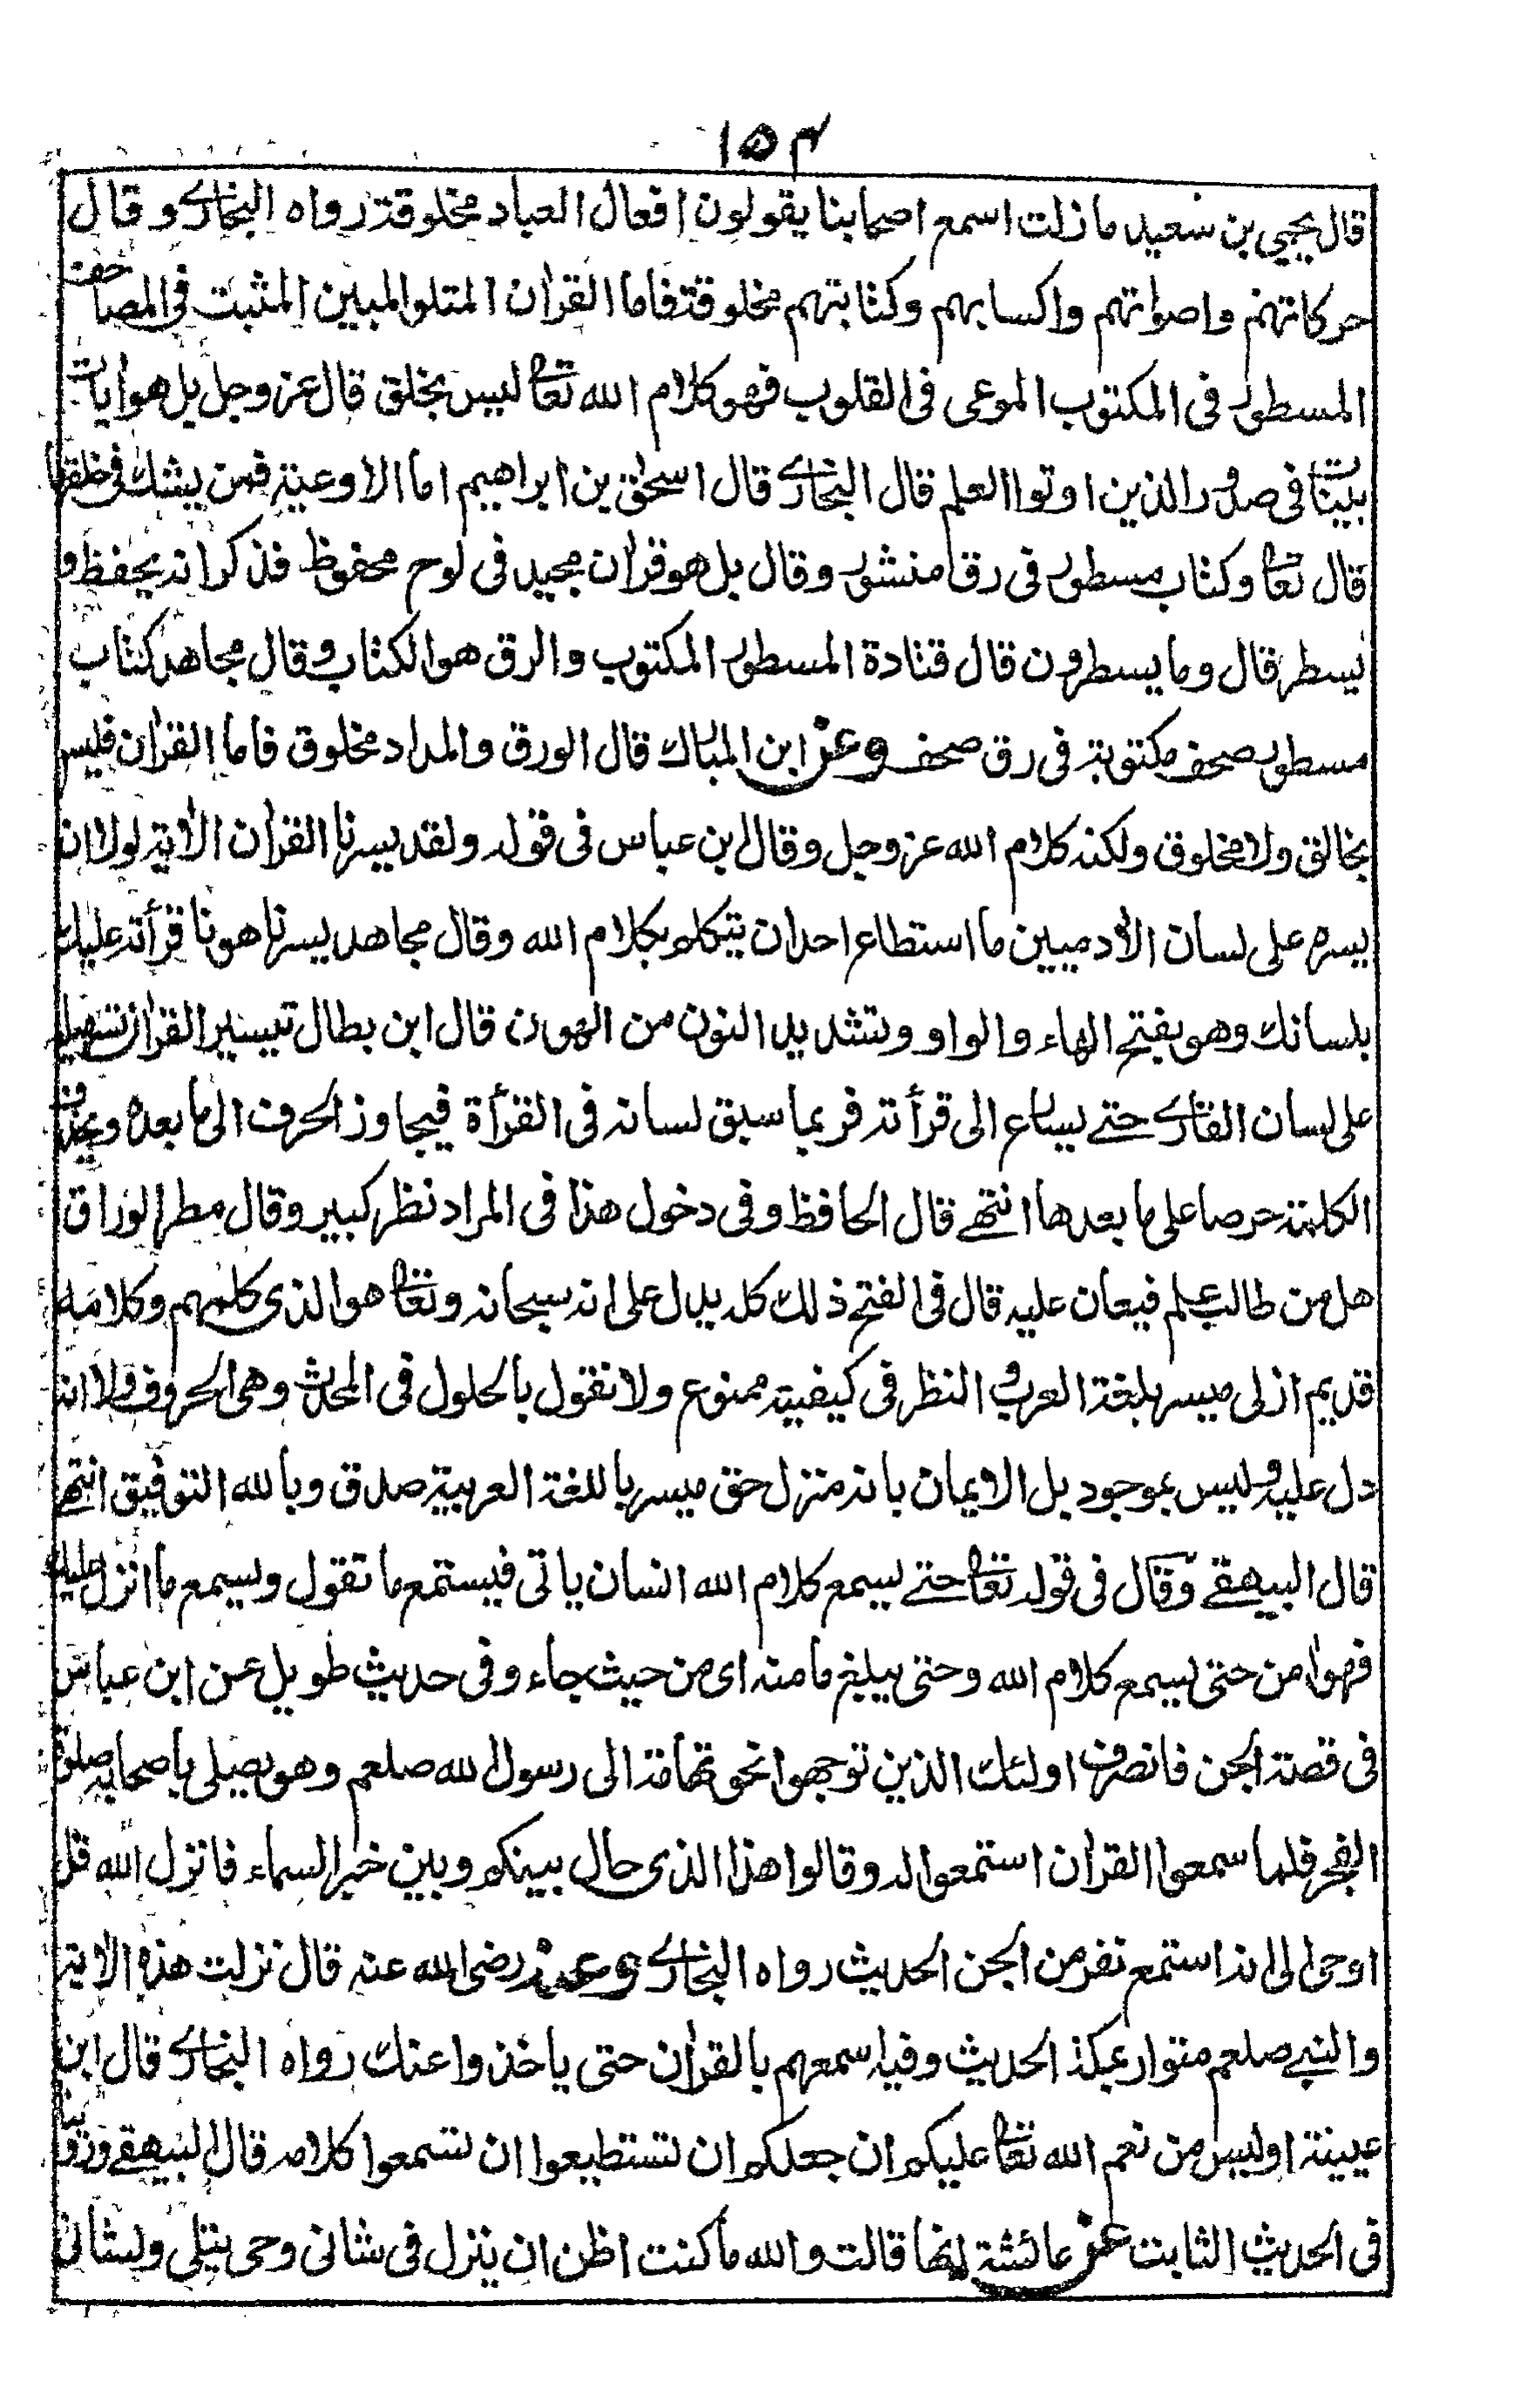 ١٥٤
قال يحيى بن سعيد ما زلت اسمع اصحابنا يقولون افعال العباد مخلوقة رواه البخارى وقال
حركاتهم واصواتهم واكسابهم وكتابتهم مخلوقة فاما القرآن المتلو المبين المثبت فى المصاحف
المسطور فى المكتوب الموعى فى القلوب فهو كلام الله تعالى ليس بخلق قال عز وجل بل هو ايات
بينات فى صدور الذين اوتوا العلم قال البخارى قال اسحق بن ابراهيم اما الاوعية فمن يشك فى خلقها
قال تعالى وكتاب مسطور فى رق منشور وقال بل هو قرآن مجيد فى لوح محفوظ فذكر انه يحفظ و
يسطر قال وما يسطرون قال قتادة المسطور المكتوب والرق هو الكتاب وقال مجاهد كتاب
مسطور صحف مكتوبة فى رق صحف وعن ابن المبارك قال الورق والمداد مخلوق فاما القرآن فليس
بخالق ولا مخلوق ولكنه كلام الله عز وجل وقال ابن عباس فى قوله ولقد يسرنا القرآن الاية لولا ان
يسره على لسان الادميين ما استطاع احد ان يتكلم بكلام الله وقال مجاهد يسرناه هونا قرأته عليك
بلسانك وهو بفتح الهاء والواو وتشديد النون من الهون قال ابن بطال تيسير القرآن تسهيله
على لسان القارى حتى يسارع الى قرأته فربما سبق لسانه فى القرأة فيجاوز الحرف الى ما بعده ويحذف
الكلمة حرصا على ما بعدها انتهى قال الحافظ وفى دخول هذا فى المراد نظر كبير وقال مطر الوراق
هل من طالب علم فيعان عليه قال فى الفتح ذلك كله يدل على انه سبحانه وتعالى هو الذى كلمهم وكلامه
قديم ازلى ميسر بلغة العرب والنظر فى كيفيته ممنوع ولا نقول بالحلول فى المحدث وهى الحروف ولا انه
دل عليه وليس بموجود بل الايمان بانه منزل حق ميسر باللغة العربية صدق وبالله التوفيق انتهى
قال البيهقى وقال فى قوله تعالى حتى يسمع كلام الله انسان ياتى فيستمع ما تقول ويسمع ما انزل عليك
فهو امن حتى يسمع كلام الله وحتى يبلغ مامنه اى من حيث جاء وفى حديث طويل عن ابن عباس
فى قصة الجن فانصرف اولئك الذين توجهوا نحو تهامة الى رسول الله صلعم وهو يصلى باصحابه صلوة
الفجر فلما سمعوا القرآن استمعوا له وقالوا هذا الذى حال بينكم وبين خبر السماء فانزل الله قل
اوحى الى انه استمع نفر من الجن الحديث رواه البخارى وعنه رضى الله عنه قال نزلت هذه الاية
والنبى صلعم متوار بمكة الحديث وفيه اسمعهم بالقرآن حتى ياخذوا عنك رواه البخارى قال ابن
عيينة اوليس من نعم الله تعالى عليكم ان جعلكم ان تستطيعوا ان تسمعوا كلامه قال البيهقى وروينا
فى الحديث الثابت عن عائشة انها قالت والله ما كنت اظن ان ينزل فى شانى وحى يتلى ولشانى